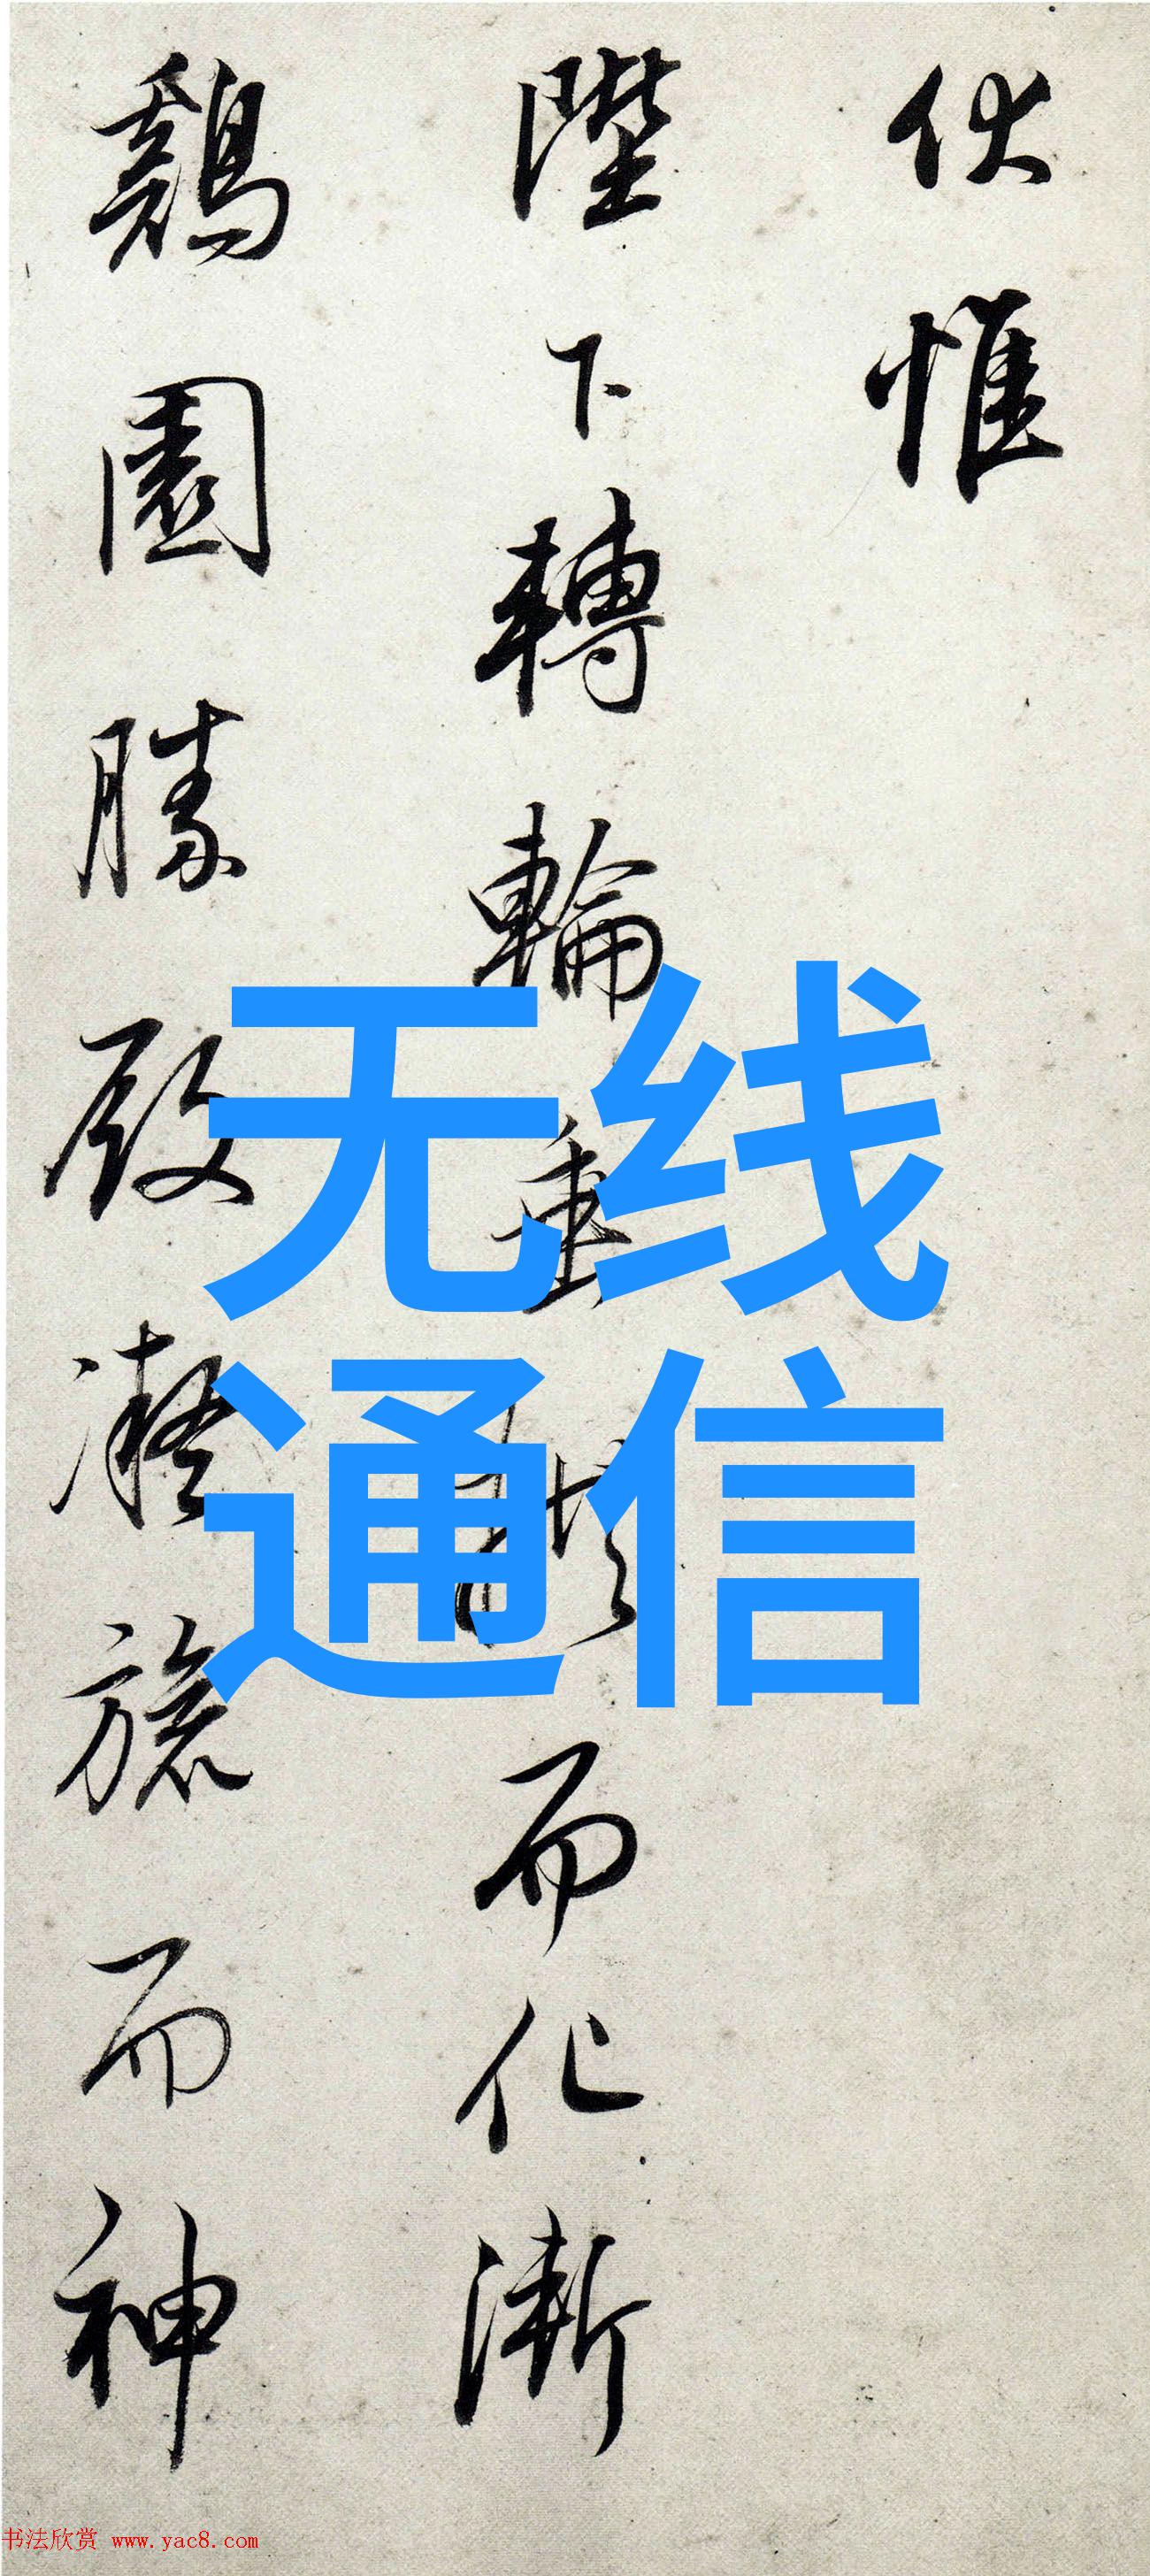 伏惟
陛下轉輪垂拱而化漸
鷄園勝殿凝旒而神
无线
通信
书法欣赏 www.yac8.com